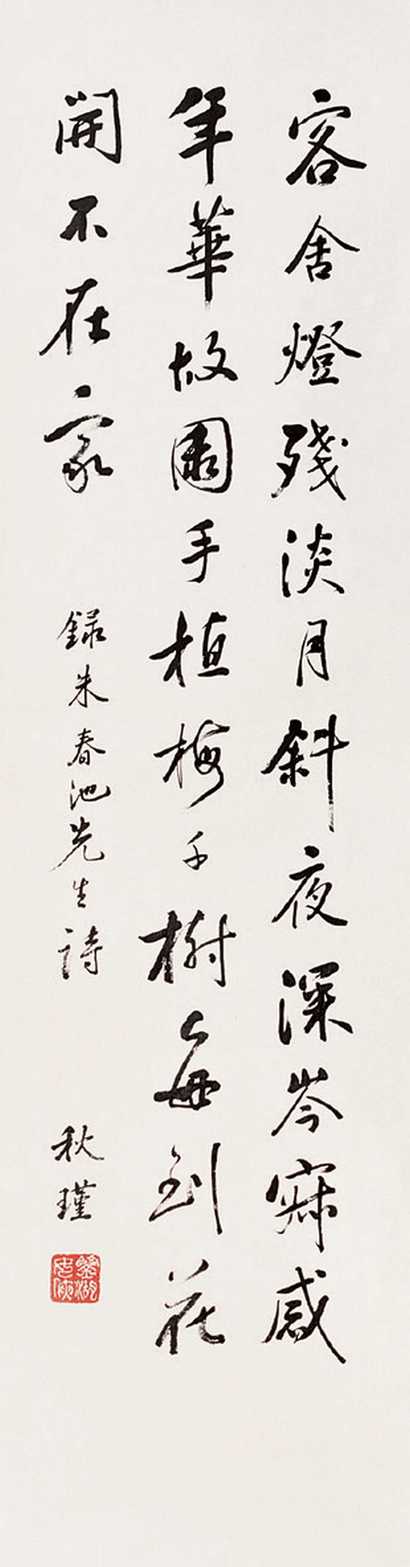 客舍燈殘淡月斜夜深岑寂感
年華故園手植梅千樹每到花
開不在家
錄朱春池先生詩
秋瑾
鑒湖女俠